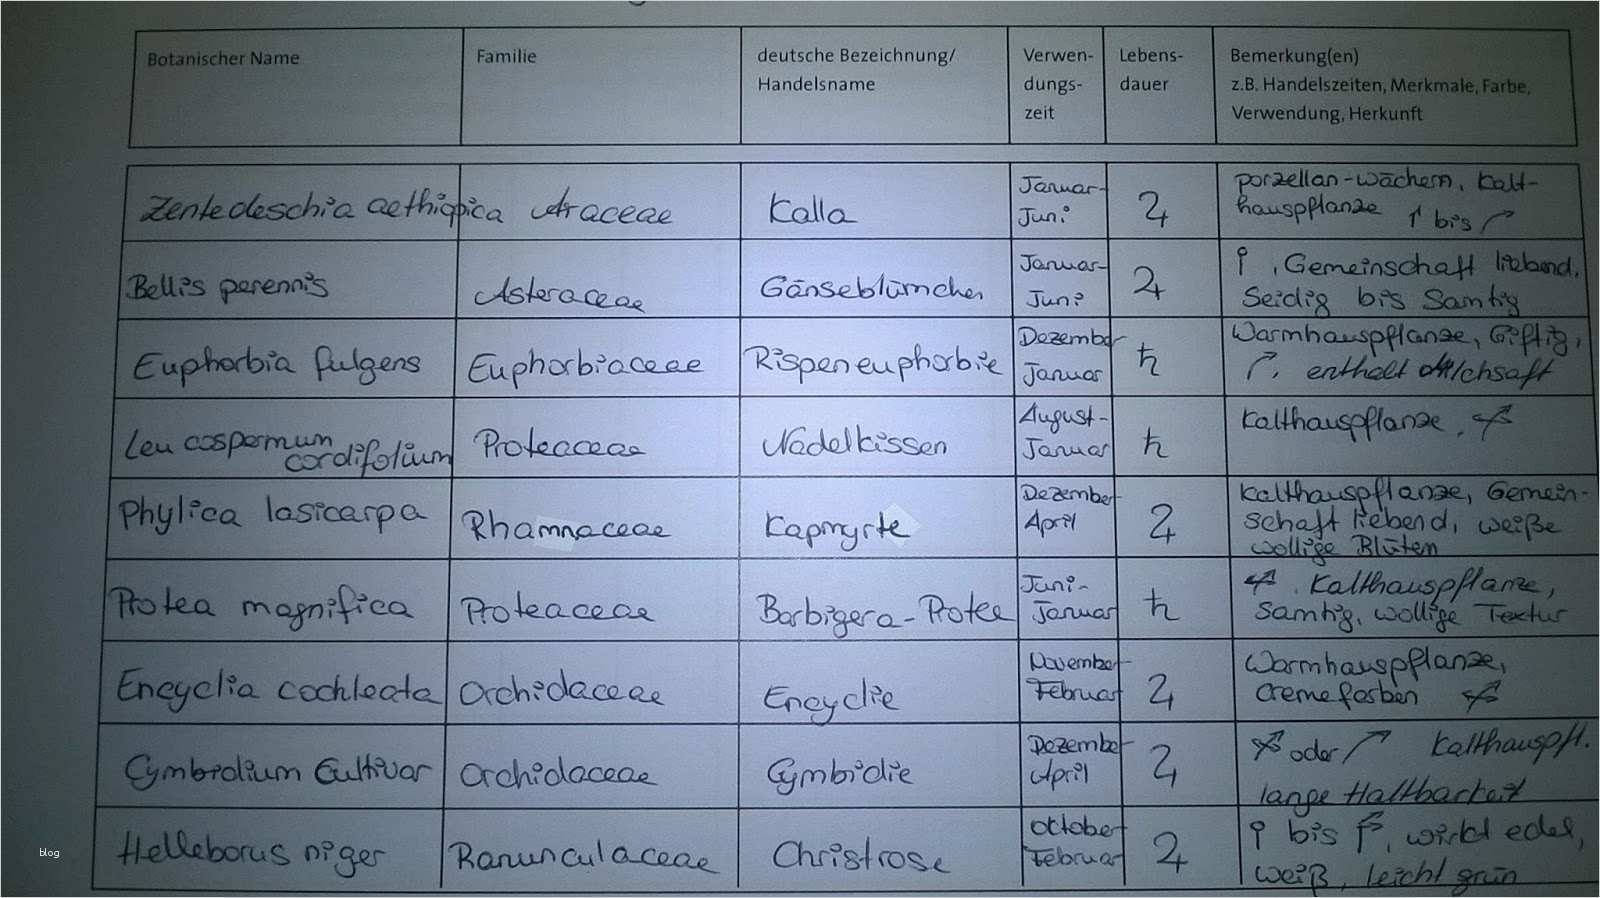 Botanischer Name
Familie
deutsche Bezeichnung/
Handelsname
Verwen-
dungs-
zeit
Lebens-
dauer
Bemerkung(en)
z.B. Handelszeiten, Merkmale, Farbe,
Verwendung, Herkunft
Zentedeschia aethiopica
Araceae
Kalla
Januar-
Juni
♃
porzellan-wächern, Kalt-
hauspflanze ↑ bis ↗
Bellis perennis
Asteraceae
Gänseblümchen
Januar-
Juni
♃
, Gemeinschaft liebend,
Seidig bis Samtig
Euphorbia fulgens
Euphorbiaceae
Rispeneuphorbie
Dezember
Januar
♄
Warmhauspflanze, Giftig,
↗, enthält Milchsaft
Leucospermum
cordifolium
Proteaceae
Nadelkissen
August-
Januar
♄
Kalthauspflanze,
Phylica lasicarpa
Rhamnaceae
Kapmyrte
Dezember-
April
♃
Kalthauspflanze, Gemein-
schaft liebend, weiße
wollige Blüten
Protea magnifica
Proteaceae
Barbigera-Protea
Juni-
Januar
♄
Kalthauspflanze,
Samtig, wollige Textur
Encyclia cochleata
Orchidaceae
Encyclie
November-
Februar
♃
Warmhauspflanze,
Cremefarben
Cymbidium Cultivar
Orchidaceae
Cymbidie
Dezember-
April
♃
oder ↗ Kalthauspfl.
lange Haltbarkeit
Helleborus niger
Ranunculaceae
Christrose
Oktober-
Februar
♃
bis , wirkt edel,
weiß, leicht grün
blog